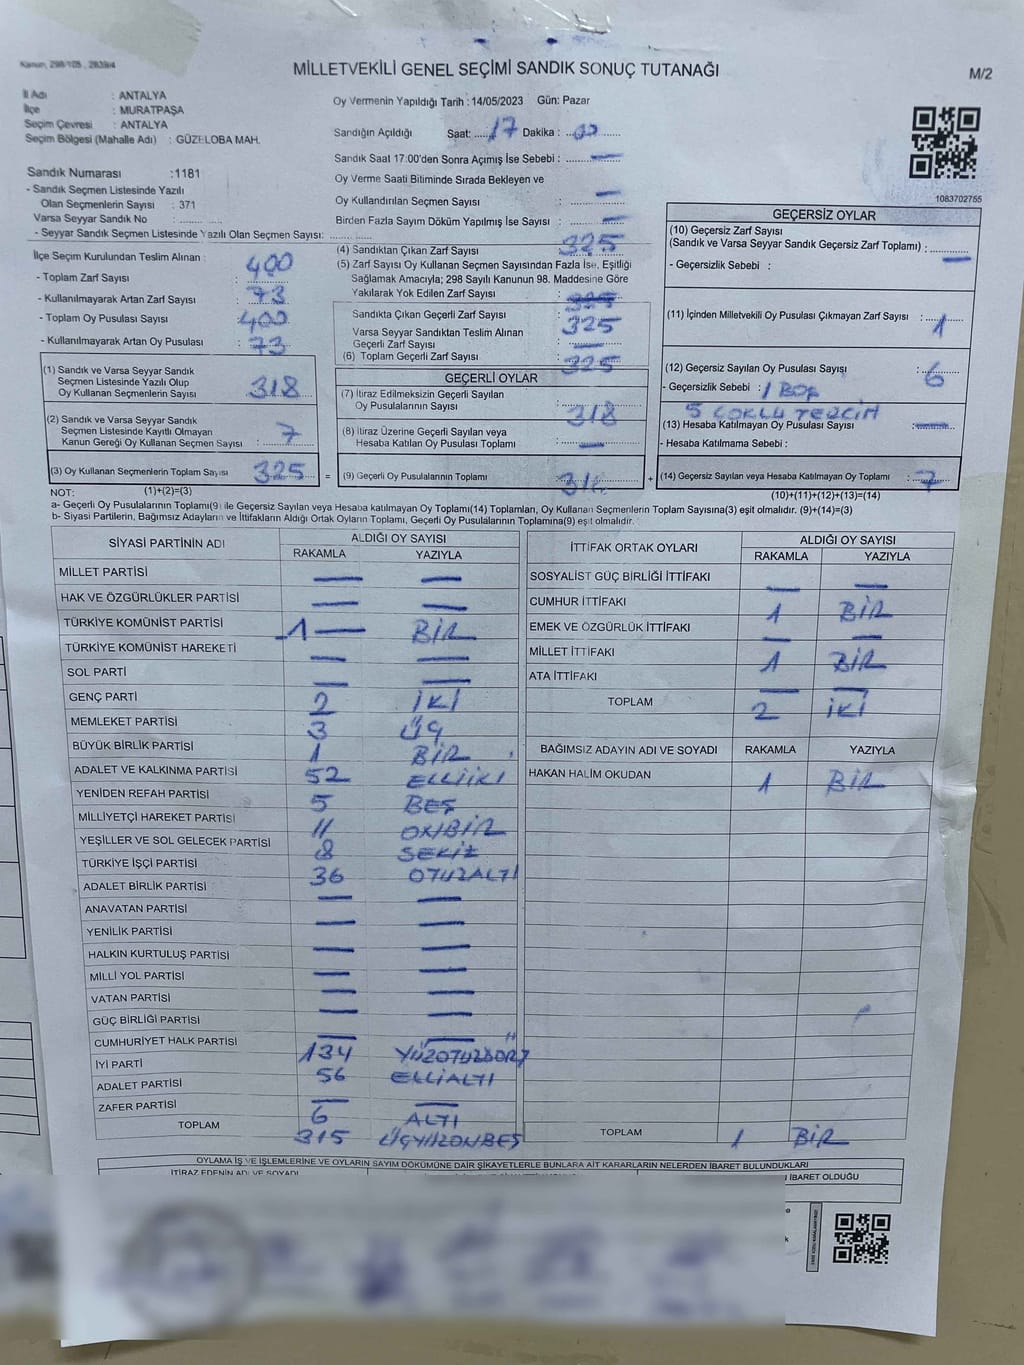 Kanun, 298/105 , 2839/4
MİLLETVEKİLİ GENEL SEÇİMİ SANDIK SONUÇ TUTANAĞI
M/2
İl Adı : ANTALYA
İlçe : MURATPAŞA
Seçim Çevresi : ANTALYA
Seçim Bölgesi (Mahalle Adı) : GÜZELOBA MAH.
Sandık Numarası :1181
- Sandık Seçmen Listesinde Yazılı
Olan Seçmenlerin Sayısı : 371
Varsa Seyyar Sandık No :
- Seyyar Sandık Seçmen Listesinde Yazılı Olan Seçmen Sayısı:
Oy Vermenin Yapıldığı Tarih : 14/05/2023 Gün: Pazar
Sandığın Açıldığı Saat: 17 Dakika : 00
Sandık Saat 17:00'den Sonra Açımış İse Sebebi : —
Oy Verme Saati Bitiminde Sırada Bekleyen ve
Oy Kullandırılan Seçmen Sayısı : —
Birden Fazla Sayım Döküm Yapılmış İse Sayısı : —
1083702755
İlçe Seçim Kurulundan Teslim Alınan :
- Toplam Zarf Sayısı : 400
- Kullanılmayarak Artan Zarf Sayısı : 73
- Toplam Oy Pusulası Sayısı : 400
- Kullanılmayarak Artan Oy Pusulası : 73
(1) Sandık ve Varsa Seyyar Sandık
Seçmen Listesinde Yazılı Olup
Oy Kullanan Seçmenlerin Sayısı : 318
(2) Sandık ve Varsa Seyyar Sandık
Seçmen Listesinde Kayıtlı Olmayan
Kanun Gereği Oy Kullanan Seçmen Sayısı : 7
(3) Oy Kullanan Seçmenlerin Toplam Sayısı 325 =
(4) Sandıktan Çıkan Zarf Sayısı : 325
(5) Zarf Sayısı Oy Kullanan Seçmen Sayısından Fazla İse, Eşitliği
Sağlamak Amacıyla; 298 Sayılı Kanunun 98. Maddesine Göre
Yakılarak Yok Edilen Zarf Sayısı :
Sandıkta Çıkan Geçerli Zarf Sayısı : 325
Varsa Seyyar Sandıktan Teslim Alınan
Geçerli Zarf Sayısı : —
(6) Toplam Geçerli Zarf Sayısı : 325
GEÇERLİ OYLAR
(7) İtiraz Edilmeksizin Geçerli Sayılan
Oy Pusulalarının Sayısı : 318
(8) İtiraz Üzerine Geçerli Sayılan veya
Hesaba Katılan Oy Pusulası Toplamı : —
(9) Geçerli Oy Pusulalarının Toplamı : 318 +
GEÇERSİZ OYLAR
(10) Geçersiz Zarf Sayısı
(Sandık ve Varsa Seyyar Sandık Geçersiz Zarf Toplamı) : —
- Geçersizlik Sebebi :
(11) İçinden Milletvekili Oy Pusulası Çıkmayan Zarf Sayısı : 1
(12) Geçersiz Sayılan Oy Pusulası Sayısı : 6
- Geçersizlik Sebebi : 1 BOŞ
5 ÇOKLU TERCİH
(13) Hesaba Katılmayan Oy Pusulası Sayısı : —
- Hesaba Katılmama Sebebi :
(14) Geçersiz Sayılan veya Hesaba Katılmayan Oy Toplamı : 7
NOT: (1)+(2)=(3)
(10)+(11)+(12)+(13)=(14)
a- Geçerli Oy Pusulalarının Toplamı(9) ile Geçersiz Sayılan veya Hesaba katılmayan Oy Toplamı(14) Toplamları, Oy Kullanan Seçmenlerin Toplam Sayısına(3) eşit olmalıdır. (9)+(14)=(3)
b- Siyasi Partilerin, Bağımsız Adayların ve İttifakların Aldığı Ortak Oyların Toplamı, Geçerli Oy Pusulalarının Toplamına(9) eşit olmalıdır.
SİYASİ PARTİNİN ADI ALDIĞI OY SAYISI
RAKAMLA YAZIYLA
MİLLET PARTİSİ — —
HAK VE ÖZGÜRLÜKLER PARTİSİ — —
TÜRKİYE KOMÜNİST PARTİSİ —1— BİR
TÜRKİYE KOMÜNİST HAREKETİ — —
SOL PARTİ — —
GENÇ PARTİ 2 İKİ
MEMLEKET PARTİSİ 3 ÜÇ
BÜYÜK BİRLİK PARTİSİ 1 BİR
ADALET VE KALKINMA PARTİSİ 52 ELLİİKİ
YENİDEN REFAH PARTİSİ 5 BEŞ
MİLLİYETÇİ HAREKET PARTİSİ 11 ONBİR
YEŞİLLER VE SOL GELECEK PARTİSİ 8 SEKİZ
TÜRKİYE İŞÇİ PARTİSİ 36 OTUZALTI
ADALET BİRLİK PARTİSİ — —
ANAVATAN PARTİSİ — —
YENİLİK PARTİSİ — —
HALKIN KURTULUŞ PARTİSİ — —
MİLLİ YOL PARTİSİ — —
VATAN PARTİSİ — —
GÜÇ BİRLİĞİ PARTİSİ — —
CUMHURİYET HALK PARTİSİ 134 YÜZOTUZDÖRT
İYİ PARTİ 56 ELLİALTI
ADALET PARTİSİ — —
ZAFER PARTİSİ 6 ALTI
TOPLAM 315 ÜÇYÜZONBEŞ
İTTİFAK ORTAK OYLARI ALDIĞI OY SAYISI
RAKAMLA YAZIYLA
SOSYALİST GÜÇ BİRLİĞİ İTTİFAKI — —
CUMHUR İTTİFAKI 1 BİR
EMEK VE ÖZGÜRLÜK İTTİFAKI — —
MİLLET İTTİFAKI 1 BİR
ATA İTTİFAKI — —
TOPLAM 2 İKİ
BAĞIMSIZ ADAYIN ADI VE SOYADI RAKAMLA YAZIYLA
HAKAN HALİM OKUDAN 1 BİR
TOPLAM 1 BİR
OYLAMA İŞ VE İŞLEMLERİNE VE OYLARIN SAYIM DÖKÜMÜNE DAİR ŞİKAYETLERLE BUNLARA AİT KARARLARIN NELERDEN İBARET BULUNDUKLARI
İTİRAZ EDENİN ADI VE SOYADI
İBARET OLDUĞU